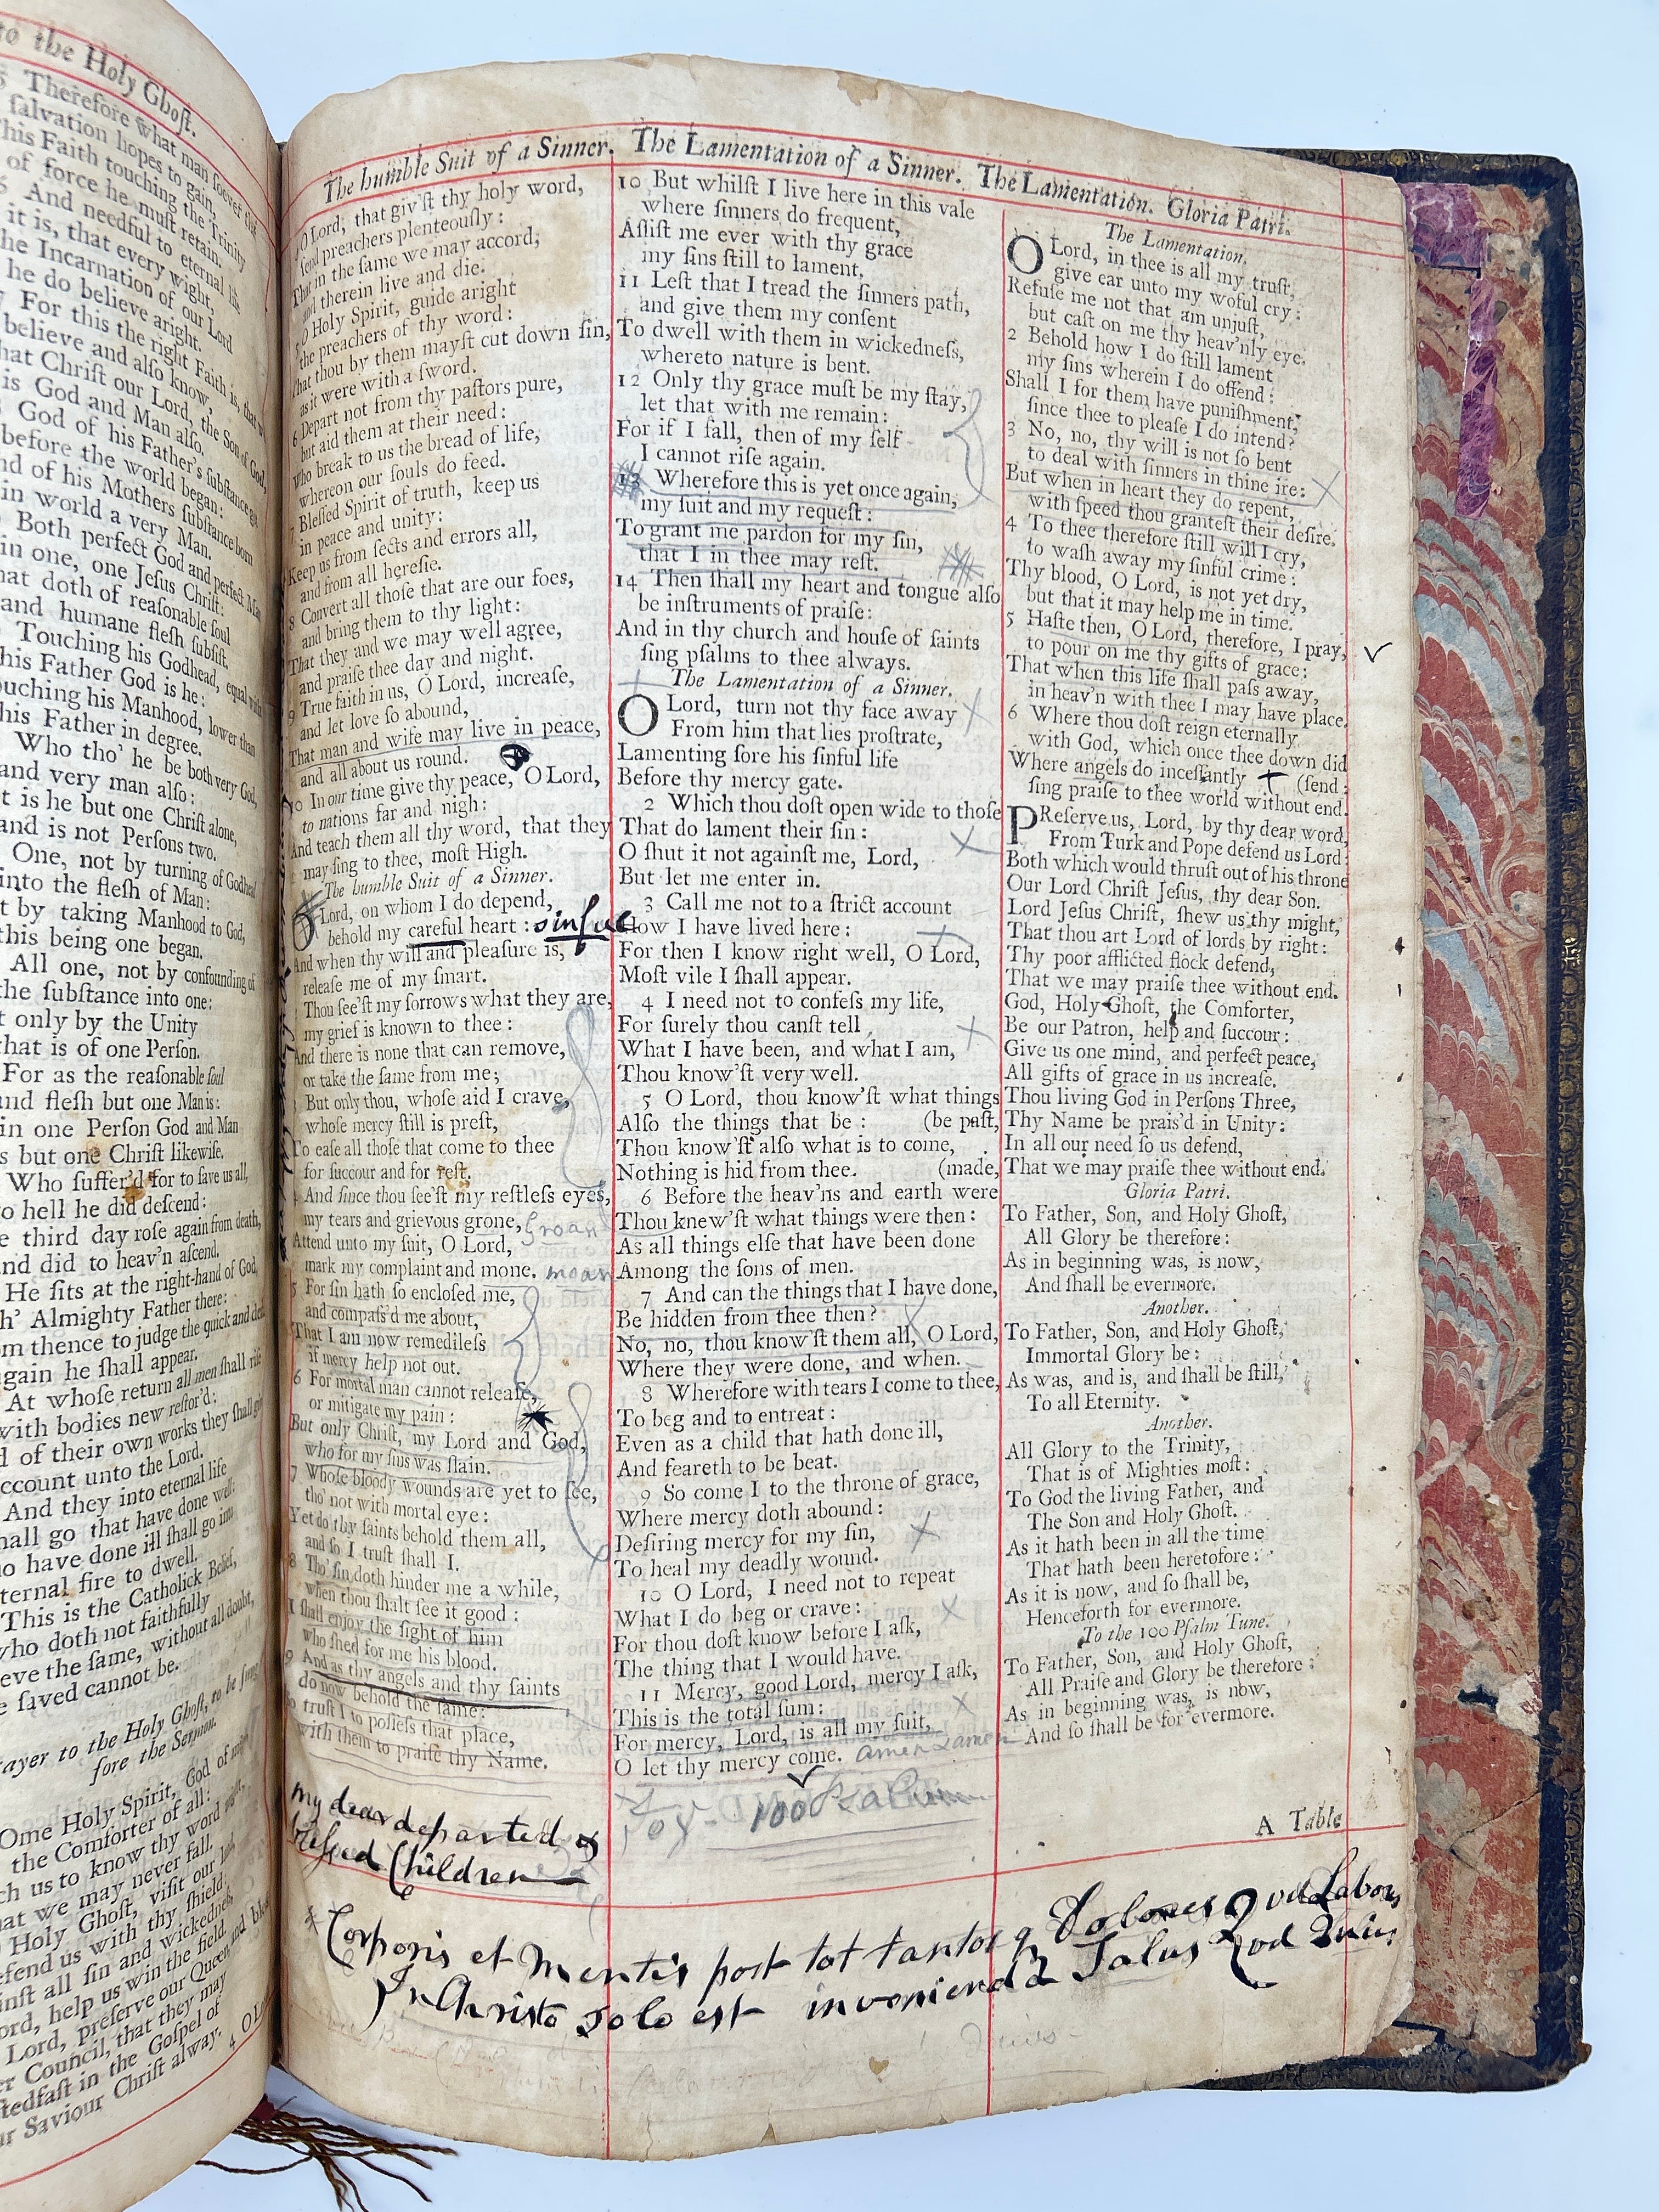 to the Holy Ghoſt.
5 Therefore what man ſoever
ſalvation hopes to gain,
This Faith touching the Trinity
of force he muſt retain.
6 And needful to eternal life
it is, that every wight,
the Incarnation of our Lord
he do believe aright.
7 For this the right Faith is, that
believe and alſo know,
that Chriſt our Lord, the Son of God,
is God and Man alſo.
God of his Father's ſubſtance
before the world began:
And of his Mothers ſubſtance born
in world a very Man.
Both perfect God and perfect Man
in one, one Jeſus Chriſt:
that doth of reaſonable ſoul
and humane fleſh ſubſiſt.
Touching his Godhead, equal with
his Father God is he:
touching his Manhood, lower than
his Father in degree.
Who tho' he be both very God,
and very man alſo:
yet is he but one Chriſt alone,
and is not Perſons two.
One, not by turning of Godhead
into the fleſh of Man:
but by taking Manhood to God,
this being one began.
All one, not by confounding of
the ſubſtance into one:
only by the Unity
that is of one Perſon.
For as the reaſonable ſoul
and fleſh but one Man is:
in one Perſon God and Man
is but one Chriſt likewiſe.
Who ſuffer'd for to ſave us all,
to hell he did deſcend:
the third day roſe again from death,
and did to heav'n aſcend.
He ſits at the right-hand of God,
th' Almighty Father there:
from thence to judge the quick and dead
again he ſhall appear.
At whoſe return all men ſhall riſe
with bodies new reſtor'd:
and of their own works they ſhall give
account unto the Lord.
And they into eternal life
ſhall go that have done well:
who have done ill ſhall go into
eternal fire to dwell.
This is the Catholick Belief,
who doth not faithfully
believe the ſame, without all doubt,
he ſaved cannot be.
Prayer to the Holy Ghoſt, to be ſung
fore the Sermon.
COme Holy Spirit, God of might
the Comforter of all:
Teach us to know thy word right,
that we may never fall.
O Holy Ghoſt, viſit our land
defend us with thy ſhield:
againſt all ſin and wickedneſs
Lord, help us win the field.
Lord, preſerve our Queen, and bleſs
her Council, that they may
ſtedfaſt in the Goſpel of
our Saviour Chriſt alway.
4 O L
The humble Suit of a Sinner. The Lamentation of a Sinner. The Lamentation. Gloria Patri.
O Lord, that giv'ſt thy holy word,
ſend preachers plenteouſly:
That in the ſame we may accord,
and therein live and die.
5 O Holy Spirit, guide aright
the preachers of thy word:
That thou by them mayſt cut down ſin,
as it were with a ſword.
6 Depart not from thy paſtors pure,
but aid them at their need:
Who break to us the bread of life,
whereon our ſouls do feed.
7 Bleſſed Spirit of truth, keep us
in peace and unity:
Keep us from ſects and errors all,
and from all hereſie.
8 Convert all thoſe that are our foes,
and bring them to thy light:
That they and we may well agree,
and praiſe thee day and night.
9 True faith in us, O Lord, increaſe,
and let love ſo abound,
That man and wife may live in peace,
and all about us round.
10 In our time give thy peace, O Lord,
to nations far and nigh:
And teach them all thy word, that they
may ſing to thee, moſt High.
The humble Suit of a Sinner.
O Lord, on whom I do depend,
behold my careful heart: sinful
And when thy will and pleaſure is,
releaſe me of my ſmart.
Thou ſee'ſt my ſorrows what they are,
my grief is known to thee:
And there is none that can remove,
or take the ſame from me;
3 But only thou, whoſe aid I crave,
whoſe mercy ſtill is preſt,
To eaſe all thoſe that come to thee
for ſuccour and for reſt.
4 And ſince thou ſee'ſt my reſtleſs eyes,
my tears and grievous grone, Groan
Attend unto my ſuit, O Lord,
mark my complaint and mone. moan
5 For ſin hath ſo encloſed me,
and compaſs'd me about,
That I am now remedileſs
if mercy help not out.
6 For mortal man cannot releaſe,
or mitigate my pain:
But only Chriſt, my Lord and God,
who for my ſins was ſlain.
7 Whoſe bloody wounds are yet to ſee,
tho' not with mortal eye:
Yet do thy ſaints behold them all,
and ſo I truſt ſhall I.
8 Tho' ſin doth hinder me a while,
when thou ſhalt ſee it good:
I ſhall enjoy the ſight of him
who ſhed for me his blood.
9 And as thy angels and thy ſaints
do now behold the ſame:
So truſt I to poſſeſs that place,
with them to praiſe thy Name.
my dear departed &
blessed Children
10 But whilſt I live here in this vale
where ſinners do frequent,
Aſſiſt me ever with thy grace
my ſins ſtill to lament,
11 Leſt that I tread the ſinners path,
and give them my conſent
To dwell with them in wickedneſs,
whereto nature is bent.
12 Only thy grace muſt be my ſtay,
let that with me remain:
For if I fall, then of my ſelf
I cannot riſe again.
13 Wherefore this is yet once again,
my ſuit and my requeſt:
To grant me pardon for my ſin,
that I in thee may reſt.
14 Then ſhall my heart and tongue alſo
be inſtruments of praiſe:
And in thy church and houſe of ſaints
ſing pſalms to thee always.
The Lamentation of a Sinner.
O Lord, turn not thy face away
From him that lies proſtrate,
Lamenting ſore his ſinful life
Before thy mercy gate.
2 Which thou doſt open wide to thoſe
That do lament their ſin:
O ſhut it not againſt me, Lord,
But let me enter in.
3 Call me not to a ſtrict account
How I have lived here:
For then I know right well, O Lord,
Moſt vile I ſhall appear.
4 I need not to confeſs my life,
For ſurely thou canſt tell
What I have been, and what I am,
Thou know'ſt very well.
5 O Lord, thou know'ſt what things
Alſo the things that be: (be paſt,
Thou know'ſt alſo what is to come,
Nothing is hid from thee. (made,
6 Before the heav'ns and earth were
Thou knew'ſt what things were then:
As all things elſe that have been done
Among the ſons of men.
7 And can the things that I have done,
Be hidden from thee then?
No, no, thou know'ſt them all, O Lord,
Where they were done, and when.
8 Wherefore with tears I come to thee,
To beg and to entreat:
Even as a child that hath done ill,
And feareth to be beat.
9 So come I to the throne of grace,
Where mercy doth abound:
Deſiring mercy for my ſin,
To heal my deadly wound.
10 O Lord, I need not to repeat
What I do beg or crave:
For thou doſt know before I aſk,
The thing that I would have.
11 Mercy, good Lord, mercy I aſk,
This is the total ſum:
For mercy, Lord, is all my ſuit,
O let thy mercy come. amen & amen
100 Psalm
The Lamentation.
O Lord, in thee is all my truſt,
give ear unto my woful cry:
Refuſe me not that am unjuſt,
but caſt on me thy heav'nly eye.
2 Behold how I do ſtill lament
my ſins wherein I do offend:
Shall I for them have puniſhment,
ſince thee to pleaſe I do intend?
3 No, no, thy will is not ſo bent
to deal with ſinners in thine ire:
But when in heart they do repent,
with ſpeed thou granteſt their deſire.
4 To thee therefore ſtill will I cry,
to waſh away my ſinful crime:
Thy blood, O Lord, is not yet dry,
but that it may help me in time.
5 Haſte then, O Lord, therefore, I pray,
to pour on me thy gifts of grace:
That when this life ſhall paſs away,
in heav'n with thee I may have place.
6 Where thou doſt reign eternally
with God, which once thee down did
Where angels do inceſſantly (ſend:
ſing praiſe to thee world without end.
PReſerve us, Lord, by thy dear word,
From Turk and Pope defend us Lord:
Both which would thruſt out of his throne
Our Lord Chriſt Jeſus, thy dear Son.
Lord Jeſus Chriſt, ſhew us thy might,
That thou art Lord of lords by right:
Thy poor afflicted flock defend,
That we may praiſe thee without end.
God, Holy Ghoſt, the Comforter,
Be our Patron, help and ſuccour:
Give us one mind, and perfect peace,
All gifts of grace in us increaſe.
Thou living God in Perſons Three,
Thy Name be prais'd in Unity:
In all our need ſo us defend,
That we may praiſe thee without end.
Gloria Patri.
To Father, Son, and Holy Ghoſt,
All Glory be therefore:
As in beginning was, is now,
And ſhall be evermore.
Another.
To Father, Son, and Holy Ghoſt,
Immortal Glory be:
As was, and is, and ſhall be ſtill,
To all Eternity.
Another.
All Glory to the Trinity,
That is of Mighties moſt:
To God the living Father, and
The Son and Holy Ghoſt.
As it hath been in all the time
That hath been heretofore:
As it is now, and ſo ſhall be,
Henceforth for evermore.
To the 100 Pſalm Tune.
To Father, Son, and Holy Ghoſt,
All Praiſe and Glory be therefore:
As in beginning was, is now,
And ſo ſhall be for evermore.
A Table
Corporis et Mentis post tot tantosq Dolores Quod Labor
In Christo solo est invenienda Salus Quod